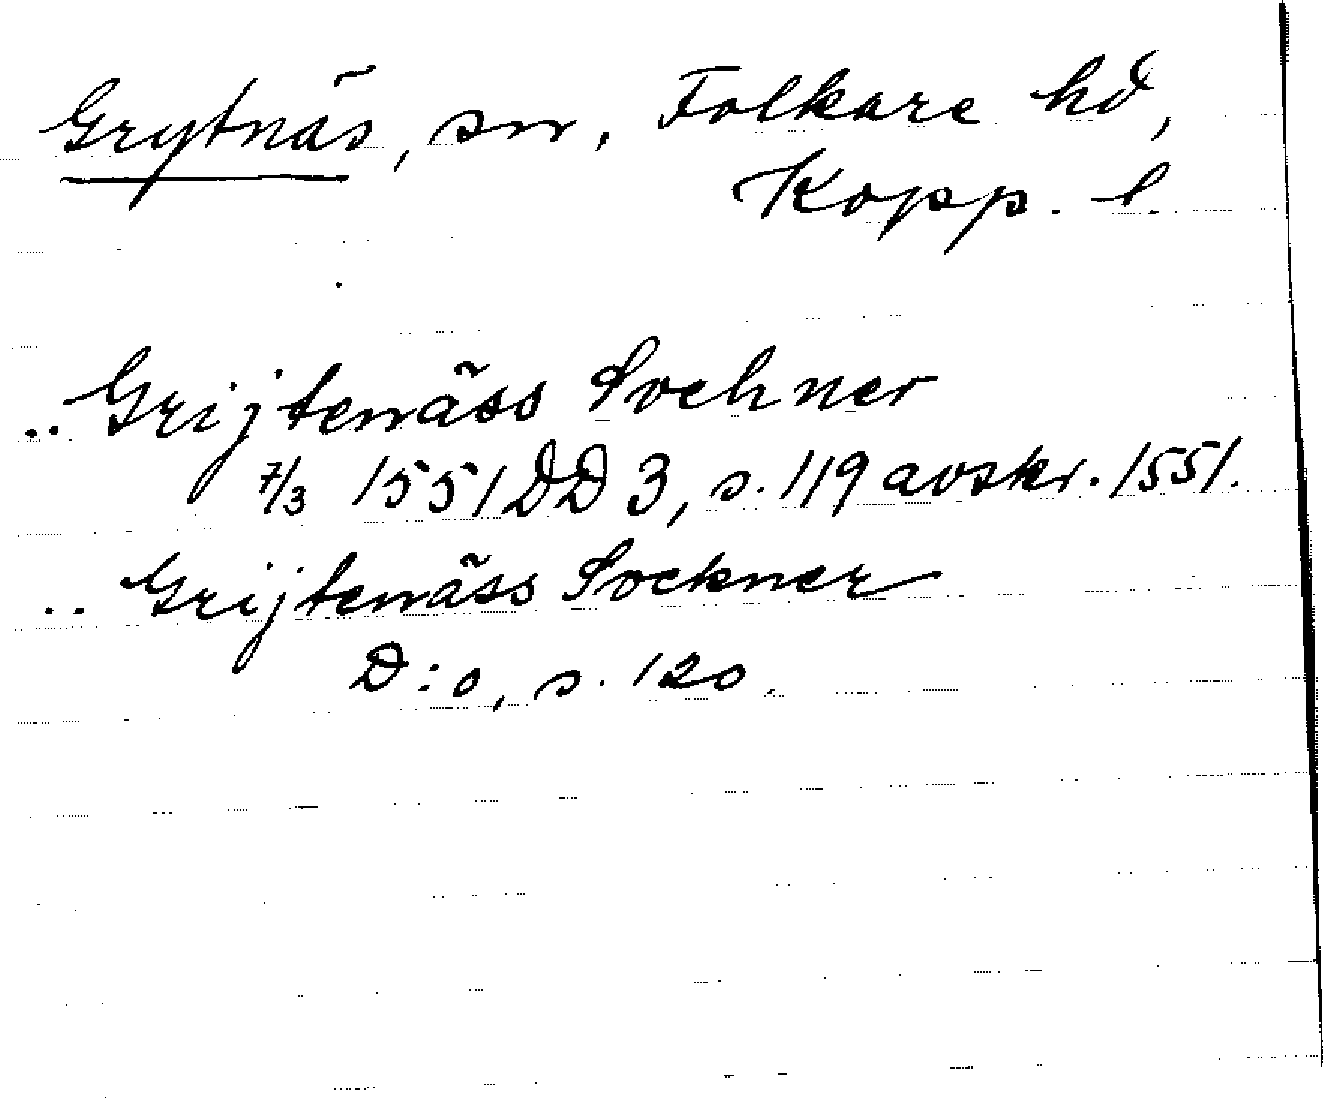 Grytnäs, sn, Folkare hd,
Kopp. l.
.. Grijtenäss Sochner
7/3 1551 DD 3, s. 119 avskr. 1551.
.. Grijtenäss Sockner
D:o, s. 120.